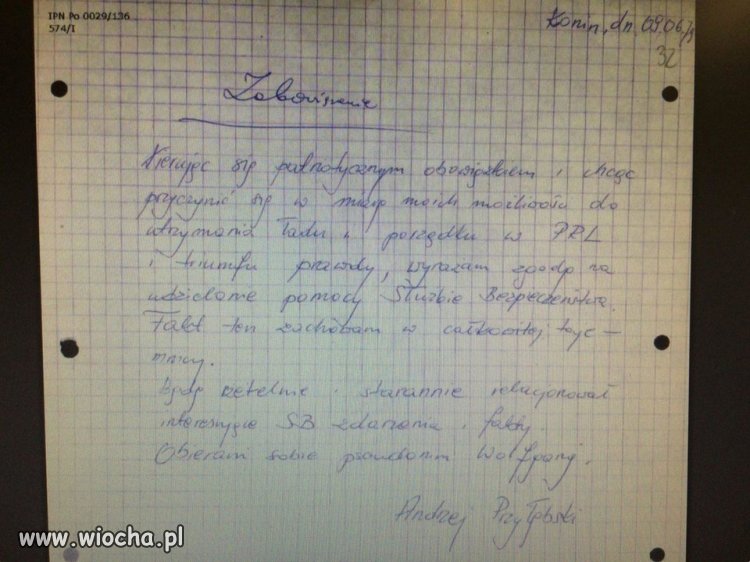 IPN Po 0029/136
574/I
Konin, dn. 09.06.79
32
Zobowiązanie
Kierując się patriotycznym obowiązkiem i chcąc
przyczynić się w miarę moich możliwości do
utrzymania ładu i porządku w PRL
i triumfu prawdy, wyrażam zgodę na
udzielanie pomocy Służbie Bezpieczeństwa.
Fakt ten zachowam w całkowitej taje-
mnicy.
Będę rzetelnie i starannie relacjonował
interesujące SB zdarzenia i fakty.
Obieram sobie pseudonim Wolfgang.
Andrzej Przyłębski
www.wiocha.pl